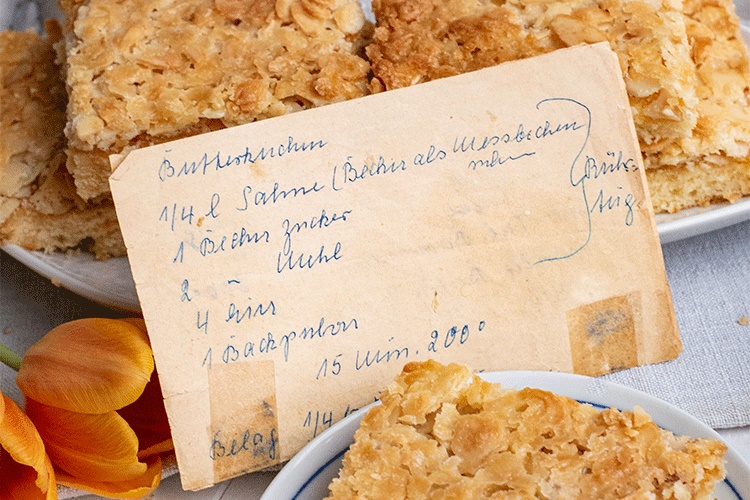 Butterkuchen
1/4 l Sahne (Becher als Messbecher
nehmen
1 Becher Zucker
2 " Mehl
4 Eier
1 Backpulver
Rühr-
teig
15 Min. 200°
Belag 1/4